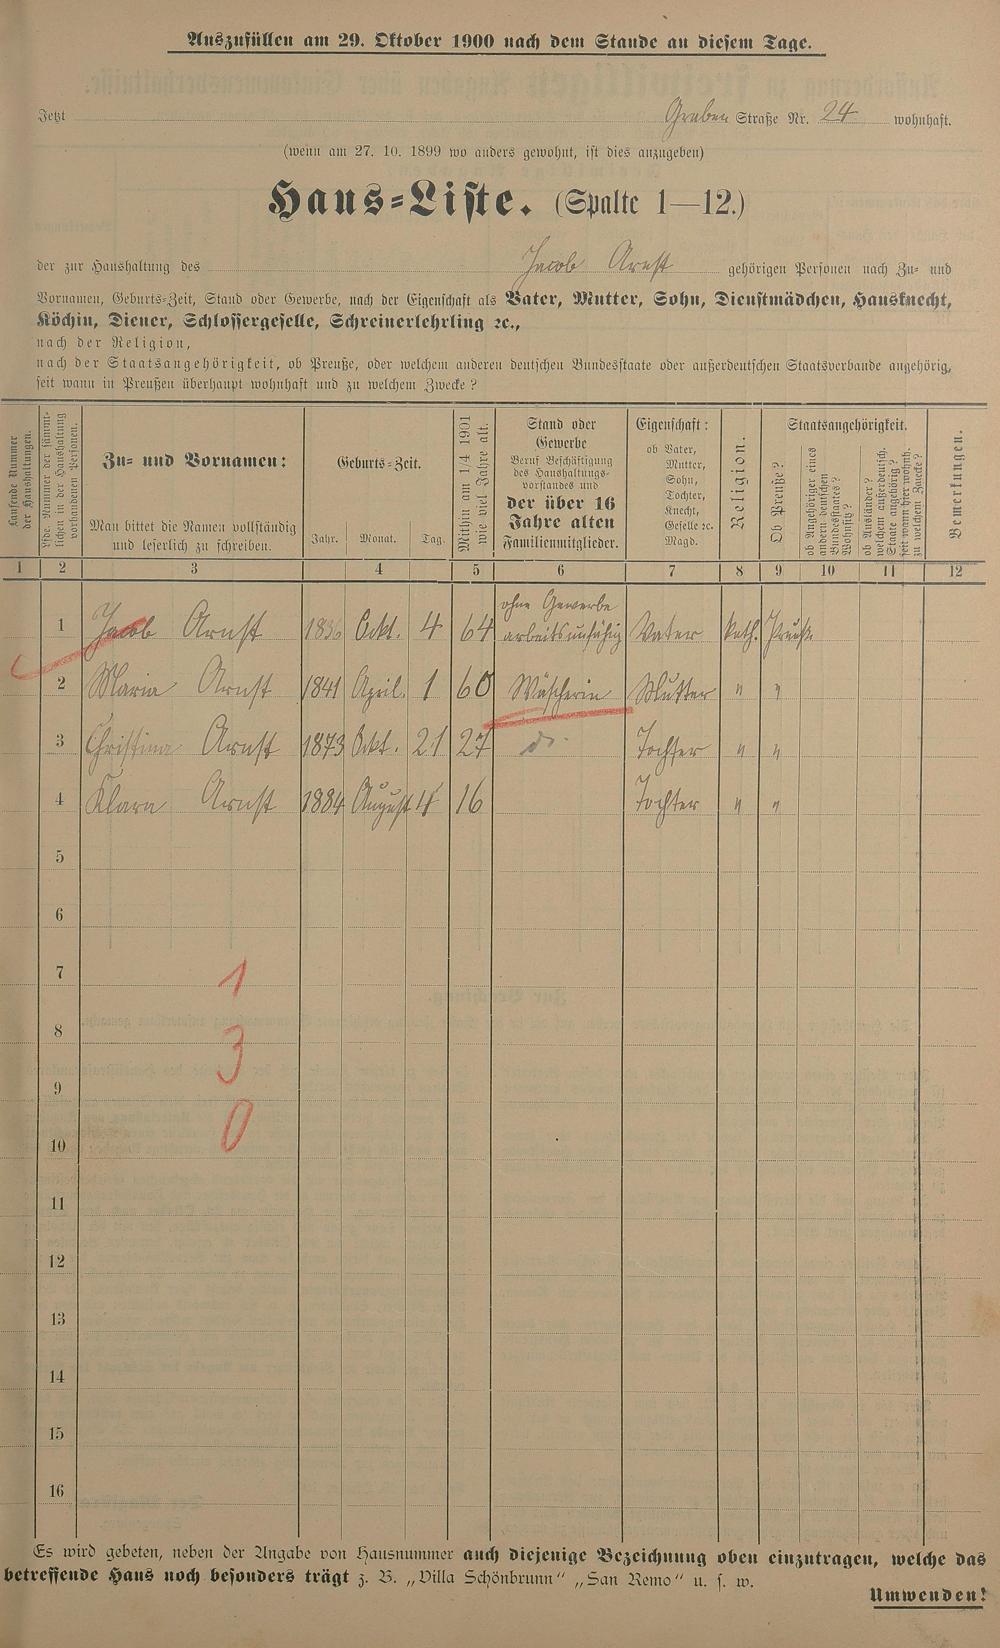 Auszufüllen am 29. Oktober 1900 nach dem Stande an diesem Tage.
Jetzt Graben Straße Nr. 24 wohnhaft.
(wenn am 27. 10. 1899 wo anders gewohnt, ist dies anzugeben)
Haus=Liste. (Spalte 1—12.)
der zur Haushaltung des Jacob Arnst gehörigen Personen nach Zu= und
Vornamen, Geburts=Zeit, Stand oder Gewerbe, nach der Eigenschaft als Vater, Mutter, Sohn, Dienstmädchen, Hausknecht,
Köchin, Diener, Schlossergeselle, Schreinerlehrling ꝛc.,
nach der Religion,
nach der Staatsangehörigkeit, ob Preuße, oder welchem anderen deutschen Bundesstaate oder außerdeutschen Staatsverbande angehörig,
seit wann in Preußen überhaupt wohnhaft und zu welchem Zwecke?
Laufende Nummer
der Haushaltungen.
Lfde. Nummer der sämmt=
lichen in der Haushaltung
vorhandenen Personen.
Zu= und Vornamen:
Man bittet die Namen vollständig
und leserlich zu schreiben.
Geburts=Zeit.
Jahr. Monat. Tag.
Mithin am 1/4 1901
wie viel Jahre alt.
Stand oder
Gewerbe
Beruf Beschäftigung
des Haushaltungs=
vorstandes und
der über 16
Jahre alten
Familienmitglieder.
Eigenschaft:
ob Vater,
Mutter,
Sohn,
Tochter,
Knecht,
Geselle ꝛc.
Magd.
Religion.
Staatsangehörigkeit.
Ob Preuße?
ob Angehöriger eines
andern deutschen
Bundesstaates?
Wohnsitz?
ob Ausländer?
welchem außerdeutsch.
Staate angehörig?
seit wann hier wohnh.
zu welchem Zwecke?
Bemerkungen.
1 2 3 4 5 6 7 8 9 10 11 12
ohne Gewerbe
1 Jacob Arnst 1836 Okt. 4 64 arbeitsunfähig Vater kath. Preuße
2 Maria Arnst 1841 April. 1 60 Wäscherin Mutter " "
3 Christina Arnst 1873 Okt. 21 27 do. Tochter " "
4 Klara Arnst 1884 August 4 16 Tochter " "
5
6
7
1
8
3
9
0
10
11
12
13
14
15
16
Es wird gebeten, neben der Angabe von Hausnummer auch diejenige Bezeichnung oben einzutragen, welche das
betreffende Haus noch besonders trägt z. B. „Villa Schönbrunn“ „San Remo“ u. s. w.
Umwenden!